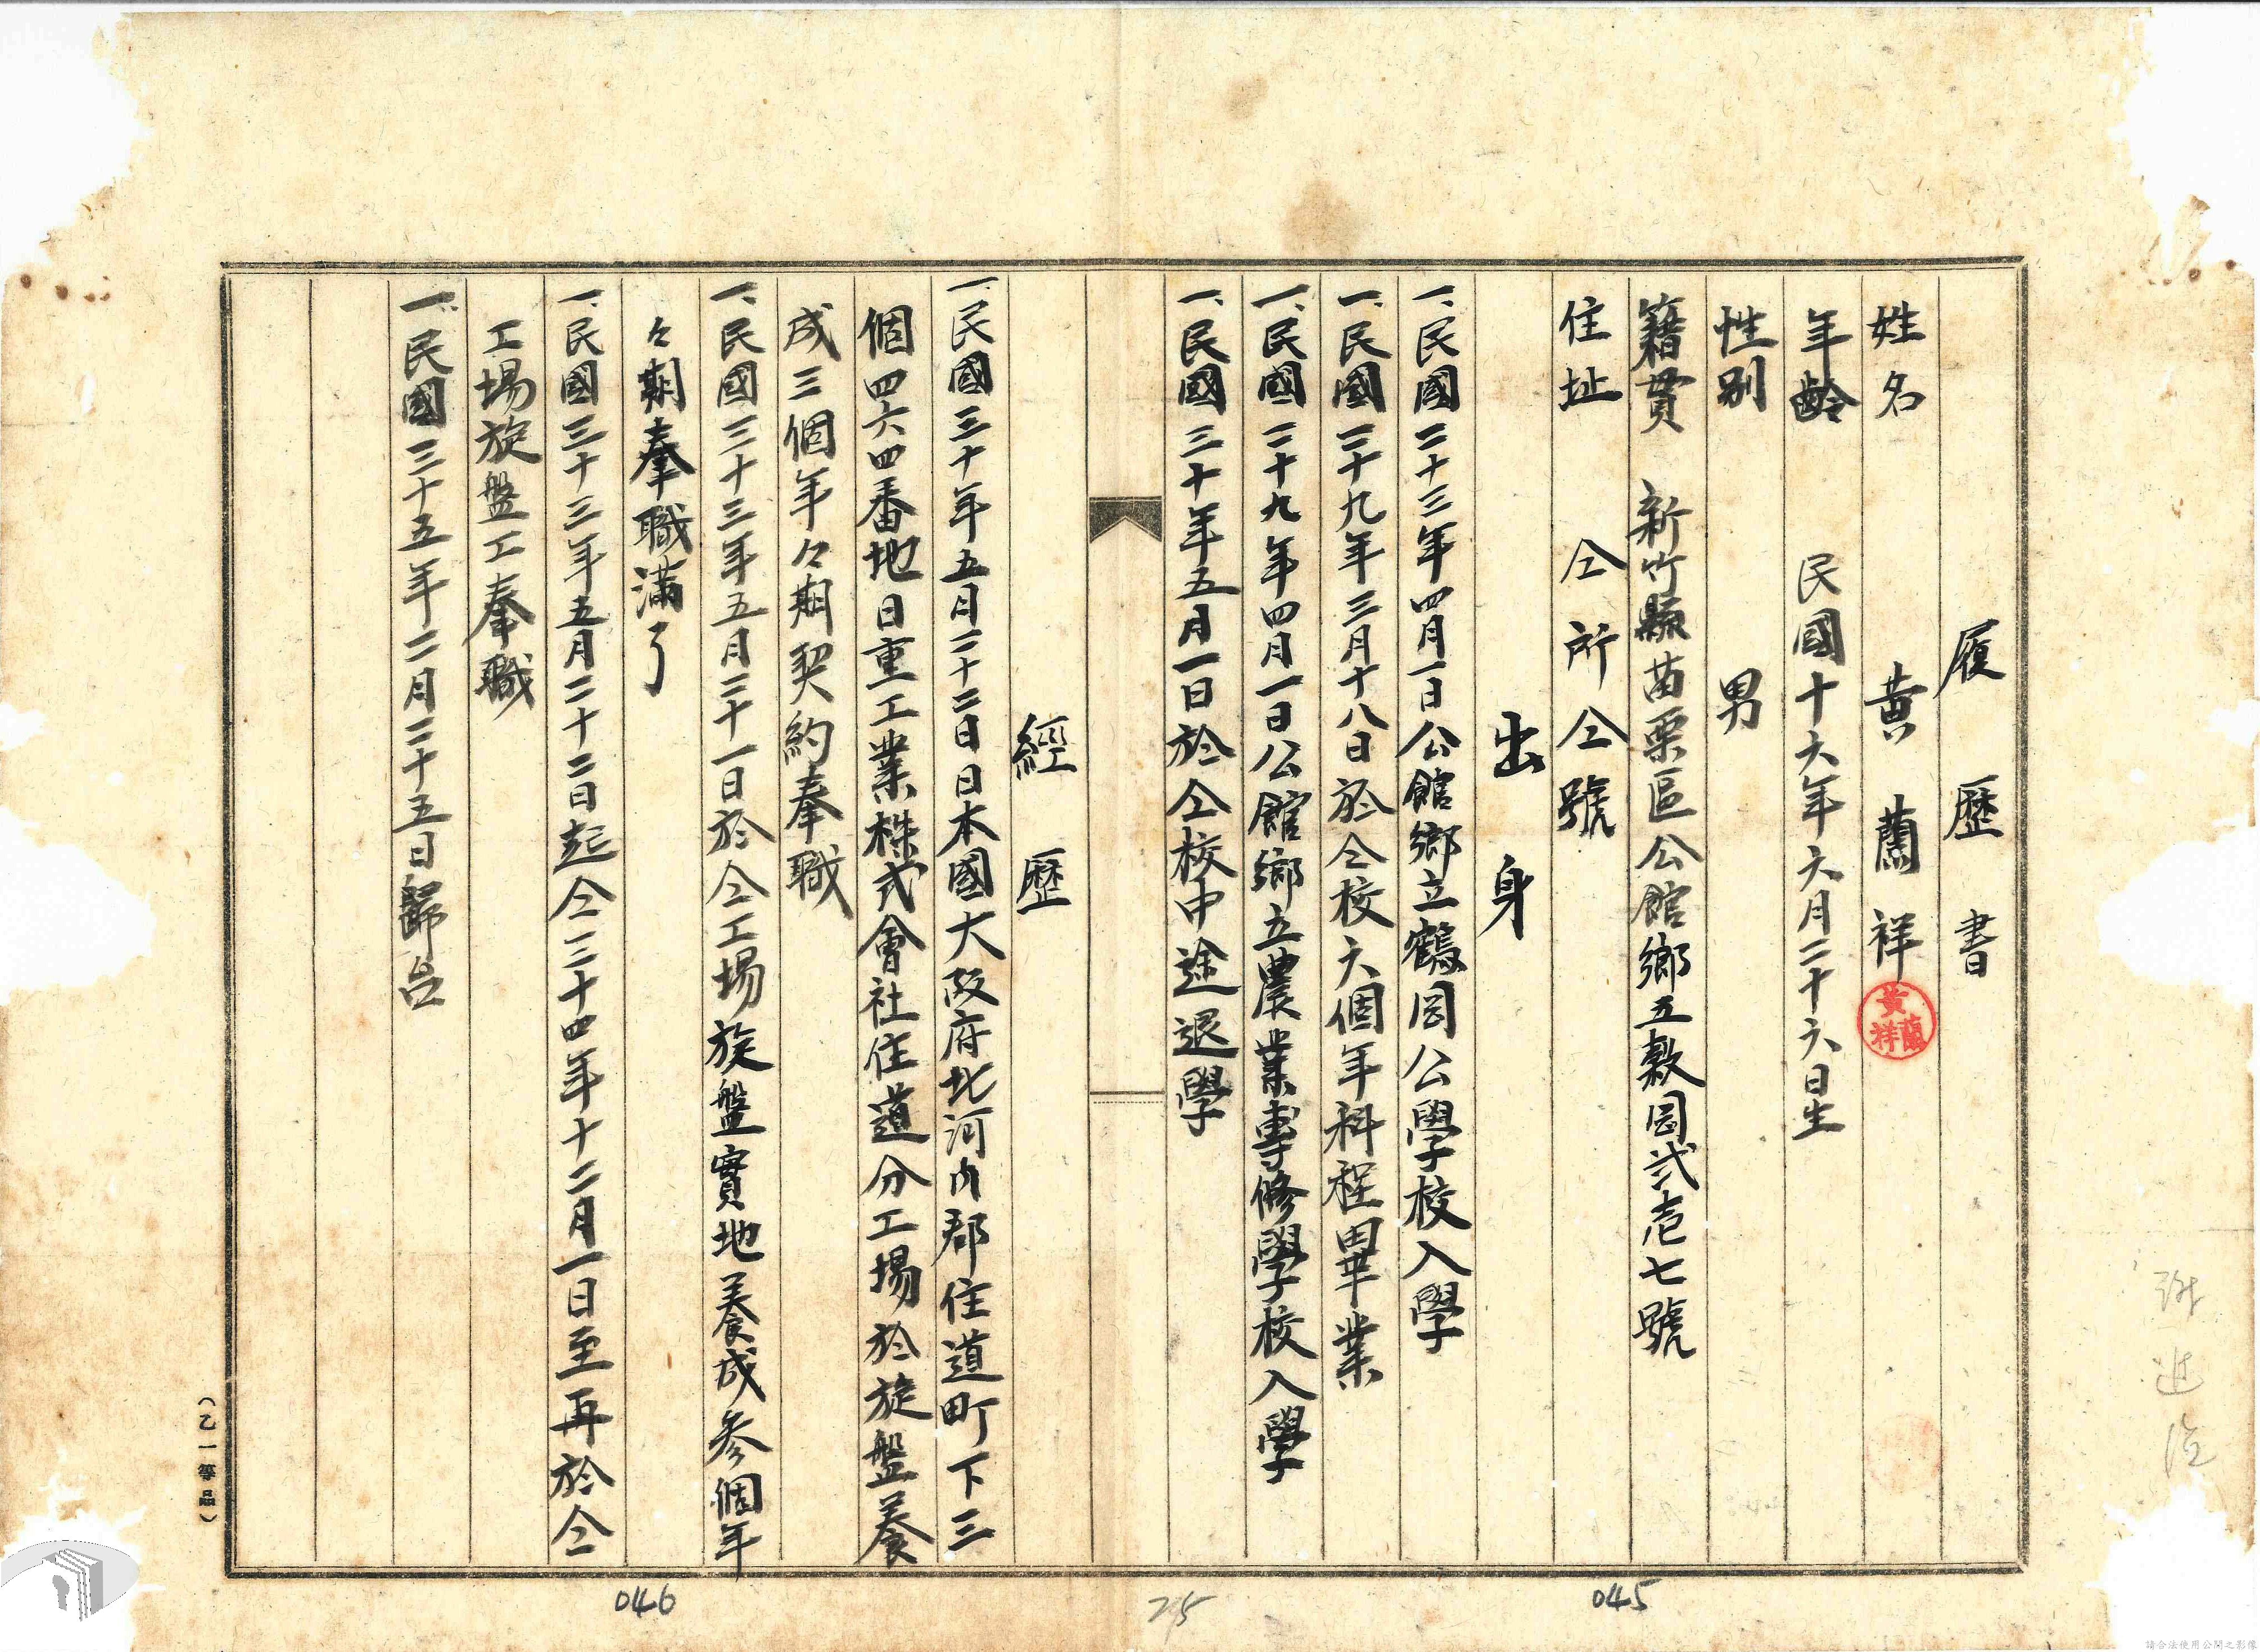 履歷書
姓名 黃蘭祥
黃蘭祥
年齡 民國十六年六月二十六日生
性別 男
籍貫 新竹縣苗栗區公館鄉五穀岡弍壱七號
住址 仝所仝號
出身
一、民國二十三年四月一日公館鄉立鶴岡公學校入學
一、民國二十九年三月十八日於仝校六個年科程畢業
一、民國二十九年四月一日公館鄉立農業專修學校入學
一、民國三十年五月一日於仝校中途退學
經歷
一、民國三十年五月二十二日日本國大阪府北河內郡住道町下三
個四六四番地日重工業株式會社住道分工場於旋盤養
成三個年々期契約奉職
一、民國三十三年五月二十一日於仝工場旋盤實地養成參個年
々期奉職滿了
一、民國三十三年五月二十二日起仝三十四年十二月一日至再於仝
工場旋盤工奉職
一、民國三十五年二月二十五日歸台
(乙一等品)
045
25
046
請合法使用公開之影像